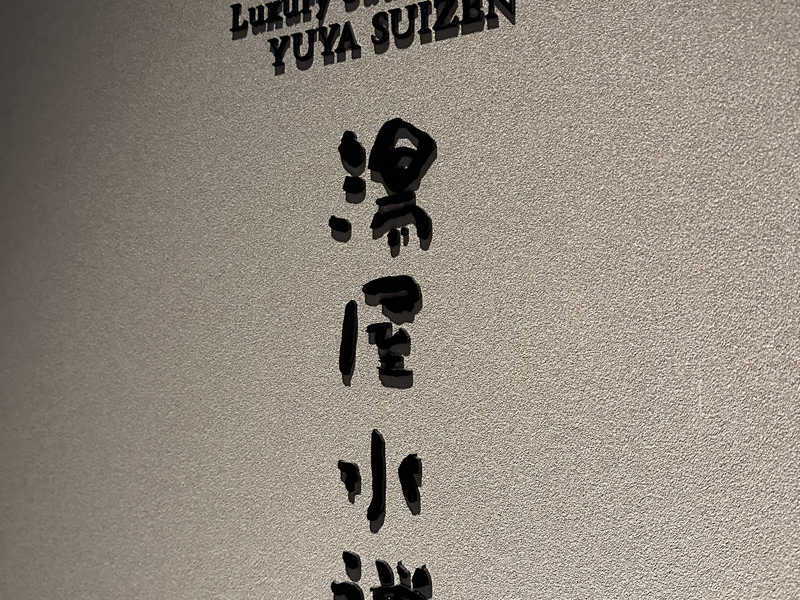 Luxury
YUYA SUIZEN
湯屋水